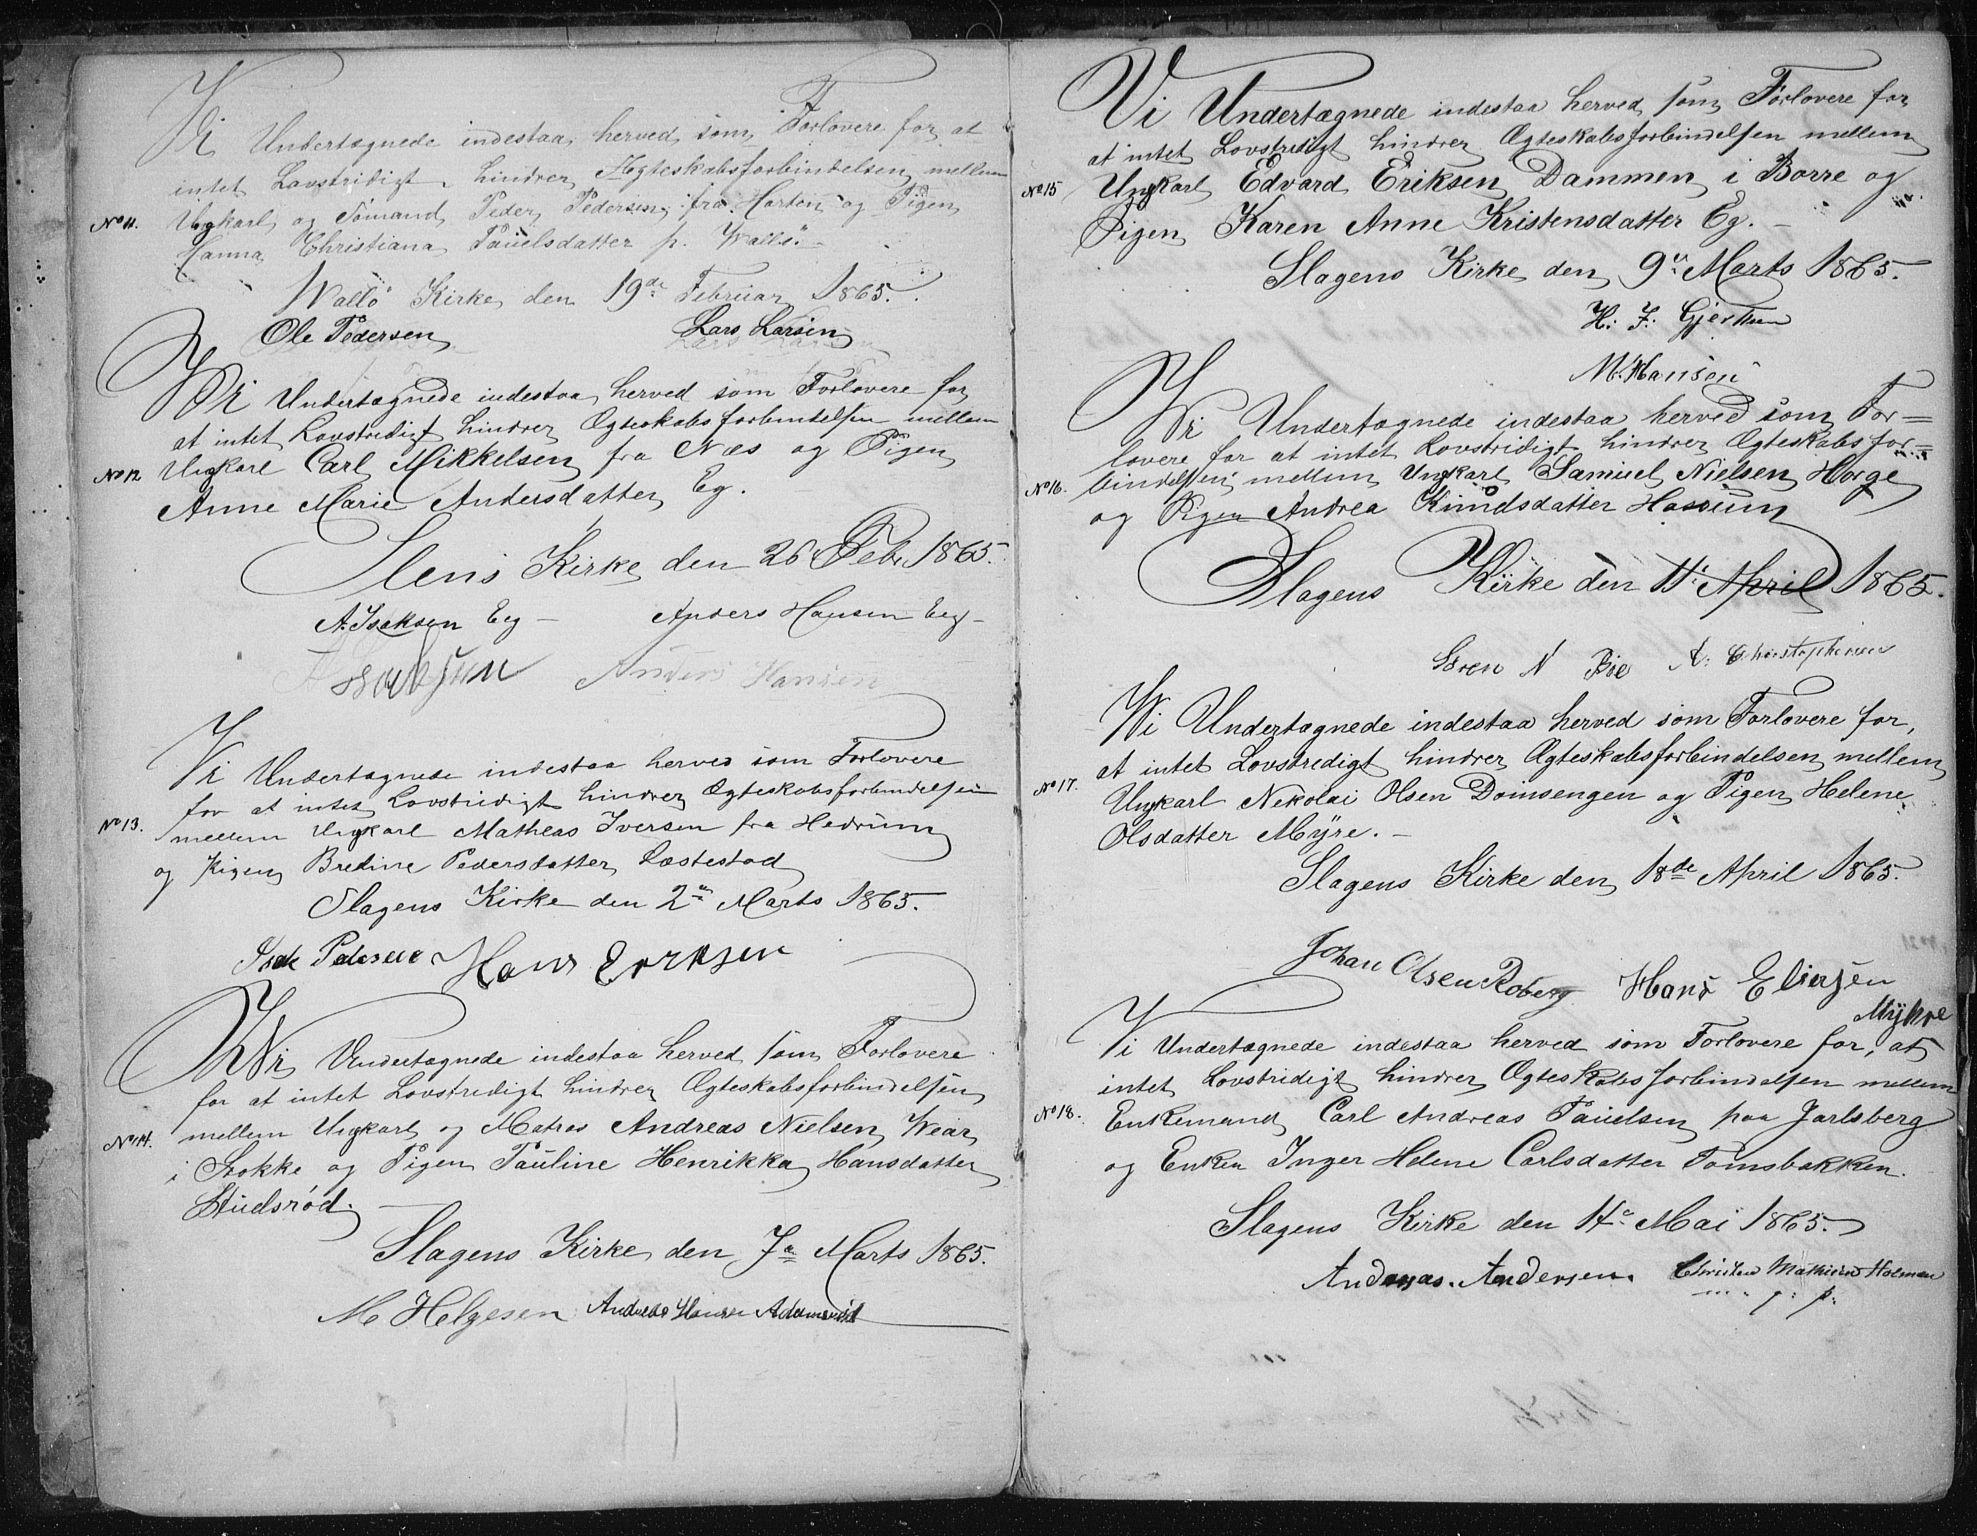 Vi Undertegnede indestaa herved som Forlovere for at
intet Lovstridigt hindrer Ægteskabsforbindelsen mellem
No 11. Ungkarl og Sømand Peder Pedersen fra Horten og Pigen
Hanna Christiana Paulsdatter p. Wallö.
Wallö Kirke den 19de Februar 1865.
Ole Pedersen Lars Larsen
Vi Undertegnede indestaa herved som Forlovere for
at intet Lovstridigt hindrer Ægteskabsforbindelsen mellem
No 12 Ungkarl Carl Mikkelsen fra Næs og Pigen
Anne Marie Andersdatter Eg.
Slens Kirke den 26 Feb. 1865.
A. Isaksen Eeg – Anders Hansen Eeg –
Isaksen Anders Hansen
Vi Undertegnede indestaa herved som Forlovere
for at intet Lovstridigt hindrer Ægteskabsforbindelsen
No 13. mellem Ungkarl Mathias Iversen fra Hedrum
og Pigen Bredine Pedersdatter Læstestad
Slagens Kirke den 2de Marts 1865.
Isak Pedersen Hans Eriksen
Vi Undertegnede indestaa herved som Forlovere
for at intet Lovstridigt hindrer Ægteskabsforbindelsen
No 14. mellem Ungkarl og Matros Andreas Nielsen Wear
i Stokke og Pigen Pauline Henrikka Hansdatter
Studsrød. –
Slagens Kirke den 7de Marts 1865.
M Helgesen Andreas Hansen Adamsrød
Vi Undertegnede indestaa herved som Forlovere for
at intet Lovstridigt hindrer Ægteskabsforbindelsen mellem
No 15 Ungkarl Edvard Eriksen Dammen i Borre og
Pigen Karen Anne Kristensdatter Eg. –
Slagens Kirke den 9de Marts 1865.
H. J. Gjertsen
M. Hansen
Vi Undertegnede indestaa herved som For=
lovere for at intet Lovstridigt hindrer Ægteskabsfor=
No 16. bindelsen mellem Ungkarl Samuel Nielsen Horge
og Pigen Andrea Knudsdatter Hassum
Slagens Kirke den 11te April 1865.
Søren N Bøe A. Christophersen
Vi Undertegnede indestaa herved som Forlovere for,
at intet Lovstridigt hindrer Ægteskabsforbindelsen mellem
No 17. Ungkarl Nekolai Olsen Domsengen og Pigen Helene
Olsdatter Myre. –
Slagens Kirke den 18de April 1865.
Johan Olsen Roberg Hans Eliasen
Mÿhre
Vi Undertegnede indestaa herved som Forlovere for, at
intet Lovstridigt hindrer Ægteskabsforbindelsen mellem
No 18. Enkemand Carl Andreas Paulsen paa Jarlsberg
og Enken Inger Helene Carlsdatter Tomsbakken.
Slagens Kirke den 14de Mai 1865.
Andreas Andersen. Christen Mathisen Holmen
m. p. p.